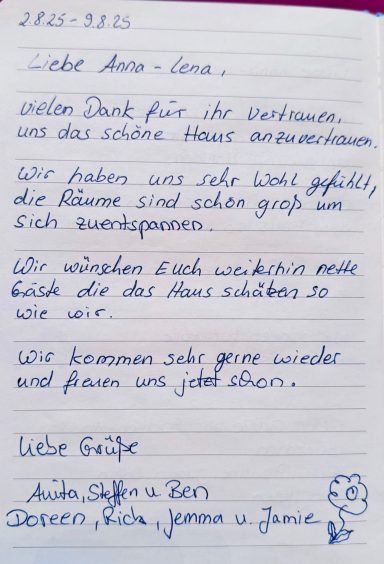 2.8.25 - 9.8.25
Liebe Anna-Lena,
vielen Dank für ihr Vertrauen,
uns das schöne Haus anzuvertrauen.
Wir haben uns sehr Wohl gefühlt,
die Räume sind schön groß um
sich zuentspannen.
Wir wünschen Euch weiterhin nette
Gäste die das Haus schätzen so
wie wir.
Wir kommen sehr gerne wieder
und freuen uns jetzt schon.
Liebe Grüße
Anita, Steffen u. Ben
Doreen, Rick, Jemma u. Jamie